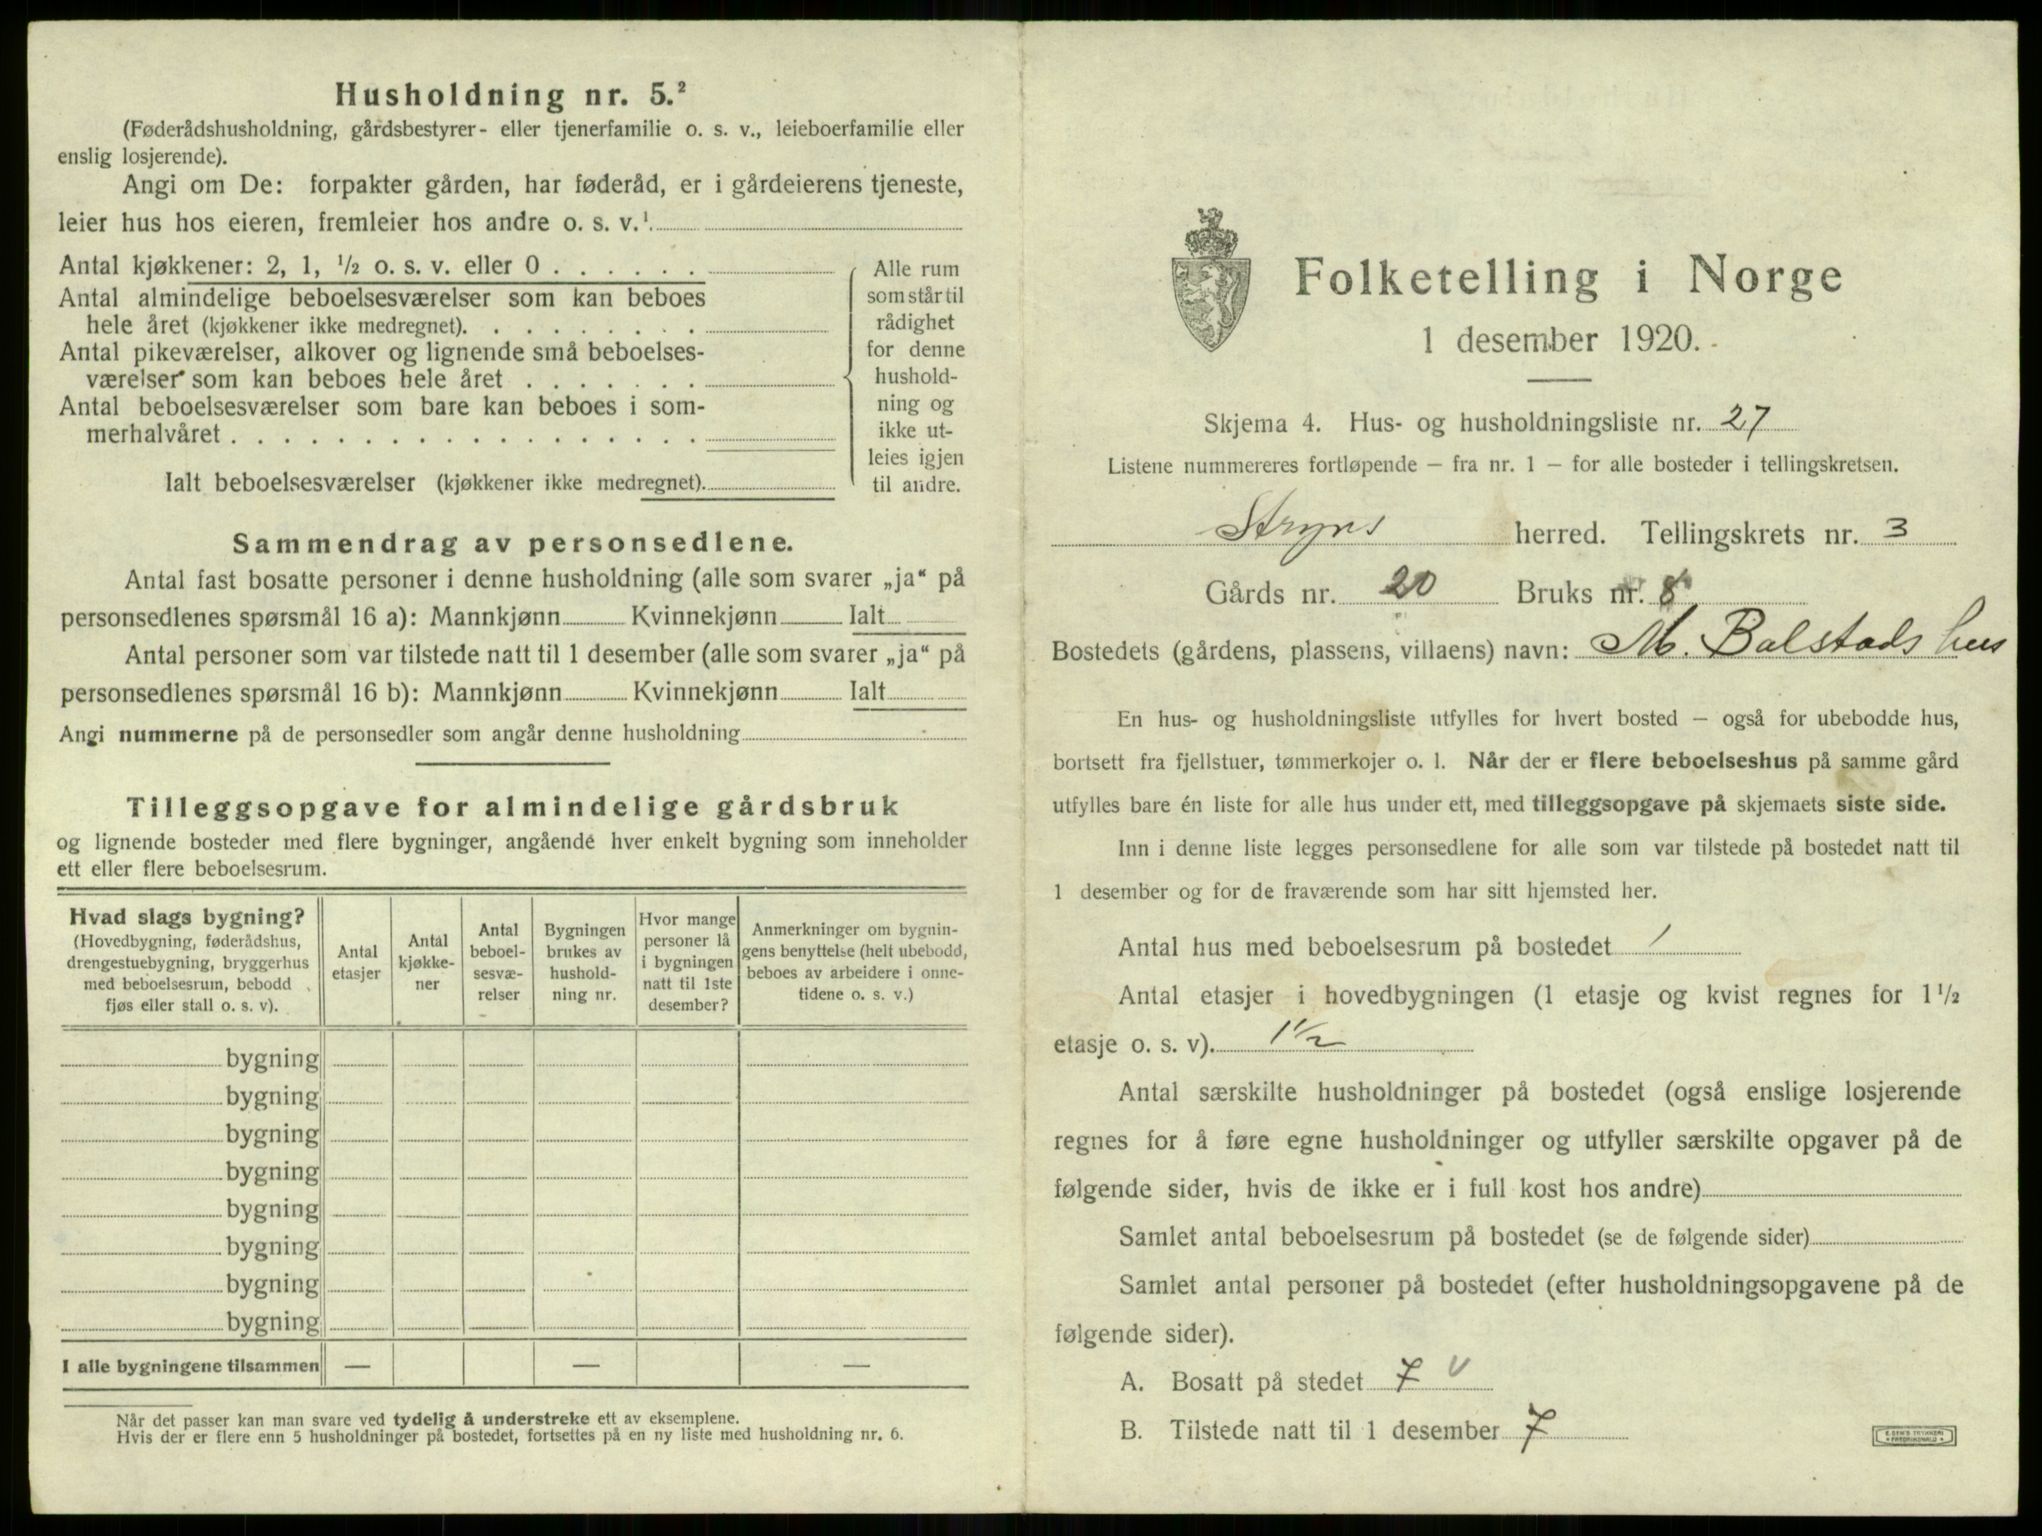 Husholdning nr. 5.²
(Føderådshusholdning, gårdsbestyrer- eller tjenerfamilie o. s. v., leieboerfamilie eller
enslig losjerende).
Angi om De: forpakter gården, har føderåd, er i gårdeierens tjeneste,
leier hus hos eieren, fremleier hos andre o. s. v.¹
Antal kjøkkener: 2, 1, ½ o. s. v. eller 0 . . . . . .
Antal almindelige beboelsesværelser som kan beboes
hele året (kjøkkener ikke medregnet). . . . . . . . .
Antal pikeværelser, alkover og lignende små beboelses-
værelser som kan beboes hele året . . . . . . .
Antal beboelsesværelser som bare kan beboes i som-
merhalvåret . . . . . . . . . . . . . . . . . .
Ialt beboelsesværelser (kjøkkener ikke medregnet).
Alle rum
som står til
rådighet
for denne
hushold-
ning og
ikke ut-
leies igjen
til andre.
Sammendrag av personsedlene.
Antal fast bosatte personer i denne husholdning (alle som svarer „ja“ på
personsedlenes spørsmål 16 a): Mannkjønn Kvinnekjønn Ialt
Antal personer som var tilstede natt til 1 desember (alle som svarer „ja“ på
personsedlenes spørsmål 16 b): Mannkjønn Kvinnekjønn Ialt
Angi nummerne på de personsedler som angår denne husholdning
Tilleggsopgave for almindelige gårdsbruk
og lignende bosteder med flere bygninger, angående hver enkelt bygning som inneholder
ett eller flere beboelsesrum.
Hvad slags bygning?
(Hovedbygning, føderådshus,
drengestuebygning, bryggerhus
med beboelsesrum, bebodd
fjøs eller stall o. s. v).
Antal
etasjer
Antal
kjøkke-
ner
Antal
beboel-
sesvæ-
relser
Bygningen
brukes av
hushold-
ning nr.
Hvor mange
personer lå
i bygningen
natt til 1ste
desember?
Anmerkninger om bygnin-
gens benyttelse (helt ubebodd,
beboes av arbeidere i onne-
tidene o. s. v.)
bygning
bygning
bygning
bygning
bygning
bygning
bygning
bygning
I alle bygningene tilsammen — — —
Når det passer kan man svare ved tydelig å understreke ett av eksemplene.
Hvis der er flere enn 5 husholdninger på bostedet, fortsettes på en ny liste med husholdning nr. 6.
Folketelling i Norge
1 desember 1920.
Skjema 4. Hus- og husholdningsliste nr. 27
Listene nummereres fortløpende – fra nr. 1 – for alle bosteder i tellingskretsen.
Stryns herred. Tellingskrets nr. 3
Gårds nr. 20 Bruks nr. 8
Bostedets (gårdens, plassens, villaens) navn: M. Balstads hus
En hus- og husholdningsliste utfylles for hvert bosted – også for ubebodde hus,
bortsett fra fjellstuer, tømmerkojer o. l. Når der er flere beboelseshus på samme gård
utfylles bare én liste for alle hus under ett, med tilleggsopgave på skjemaets siste side.
Inn i denne liste legges personsedlene for alle som var tilstede på bostedet natt til
1 desember og for de fraværende som har sitt hjemsted her.
Antal hus med beboelsesrum på bostedet 1
Antal etasjer i hovedbygningen (1 etasje og kvist regnes for 1½
etasje o. s. v). 1½
Antal særskilte husholdninger på bostedet (også enslige losjerende
regnes for å føre egne husholdninger og utfyller særskilte opgaver på de
følgende sider, hvis de ikke er i full kost hos andre)
Samlet antal beboelsesrum på bostedet (se de følgende sider)
Samlet antal personer på bostedet (efter husholdningsopgavene på de
følgende sider).
A. Bosatt på stedet 7 v
B. Tilstede natt til 1 desember 7